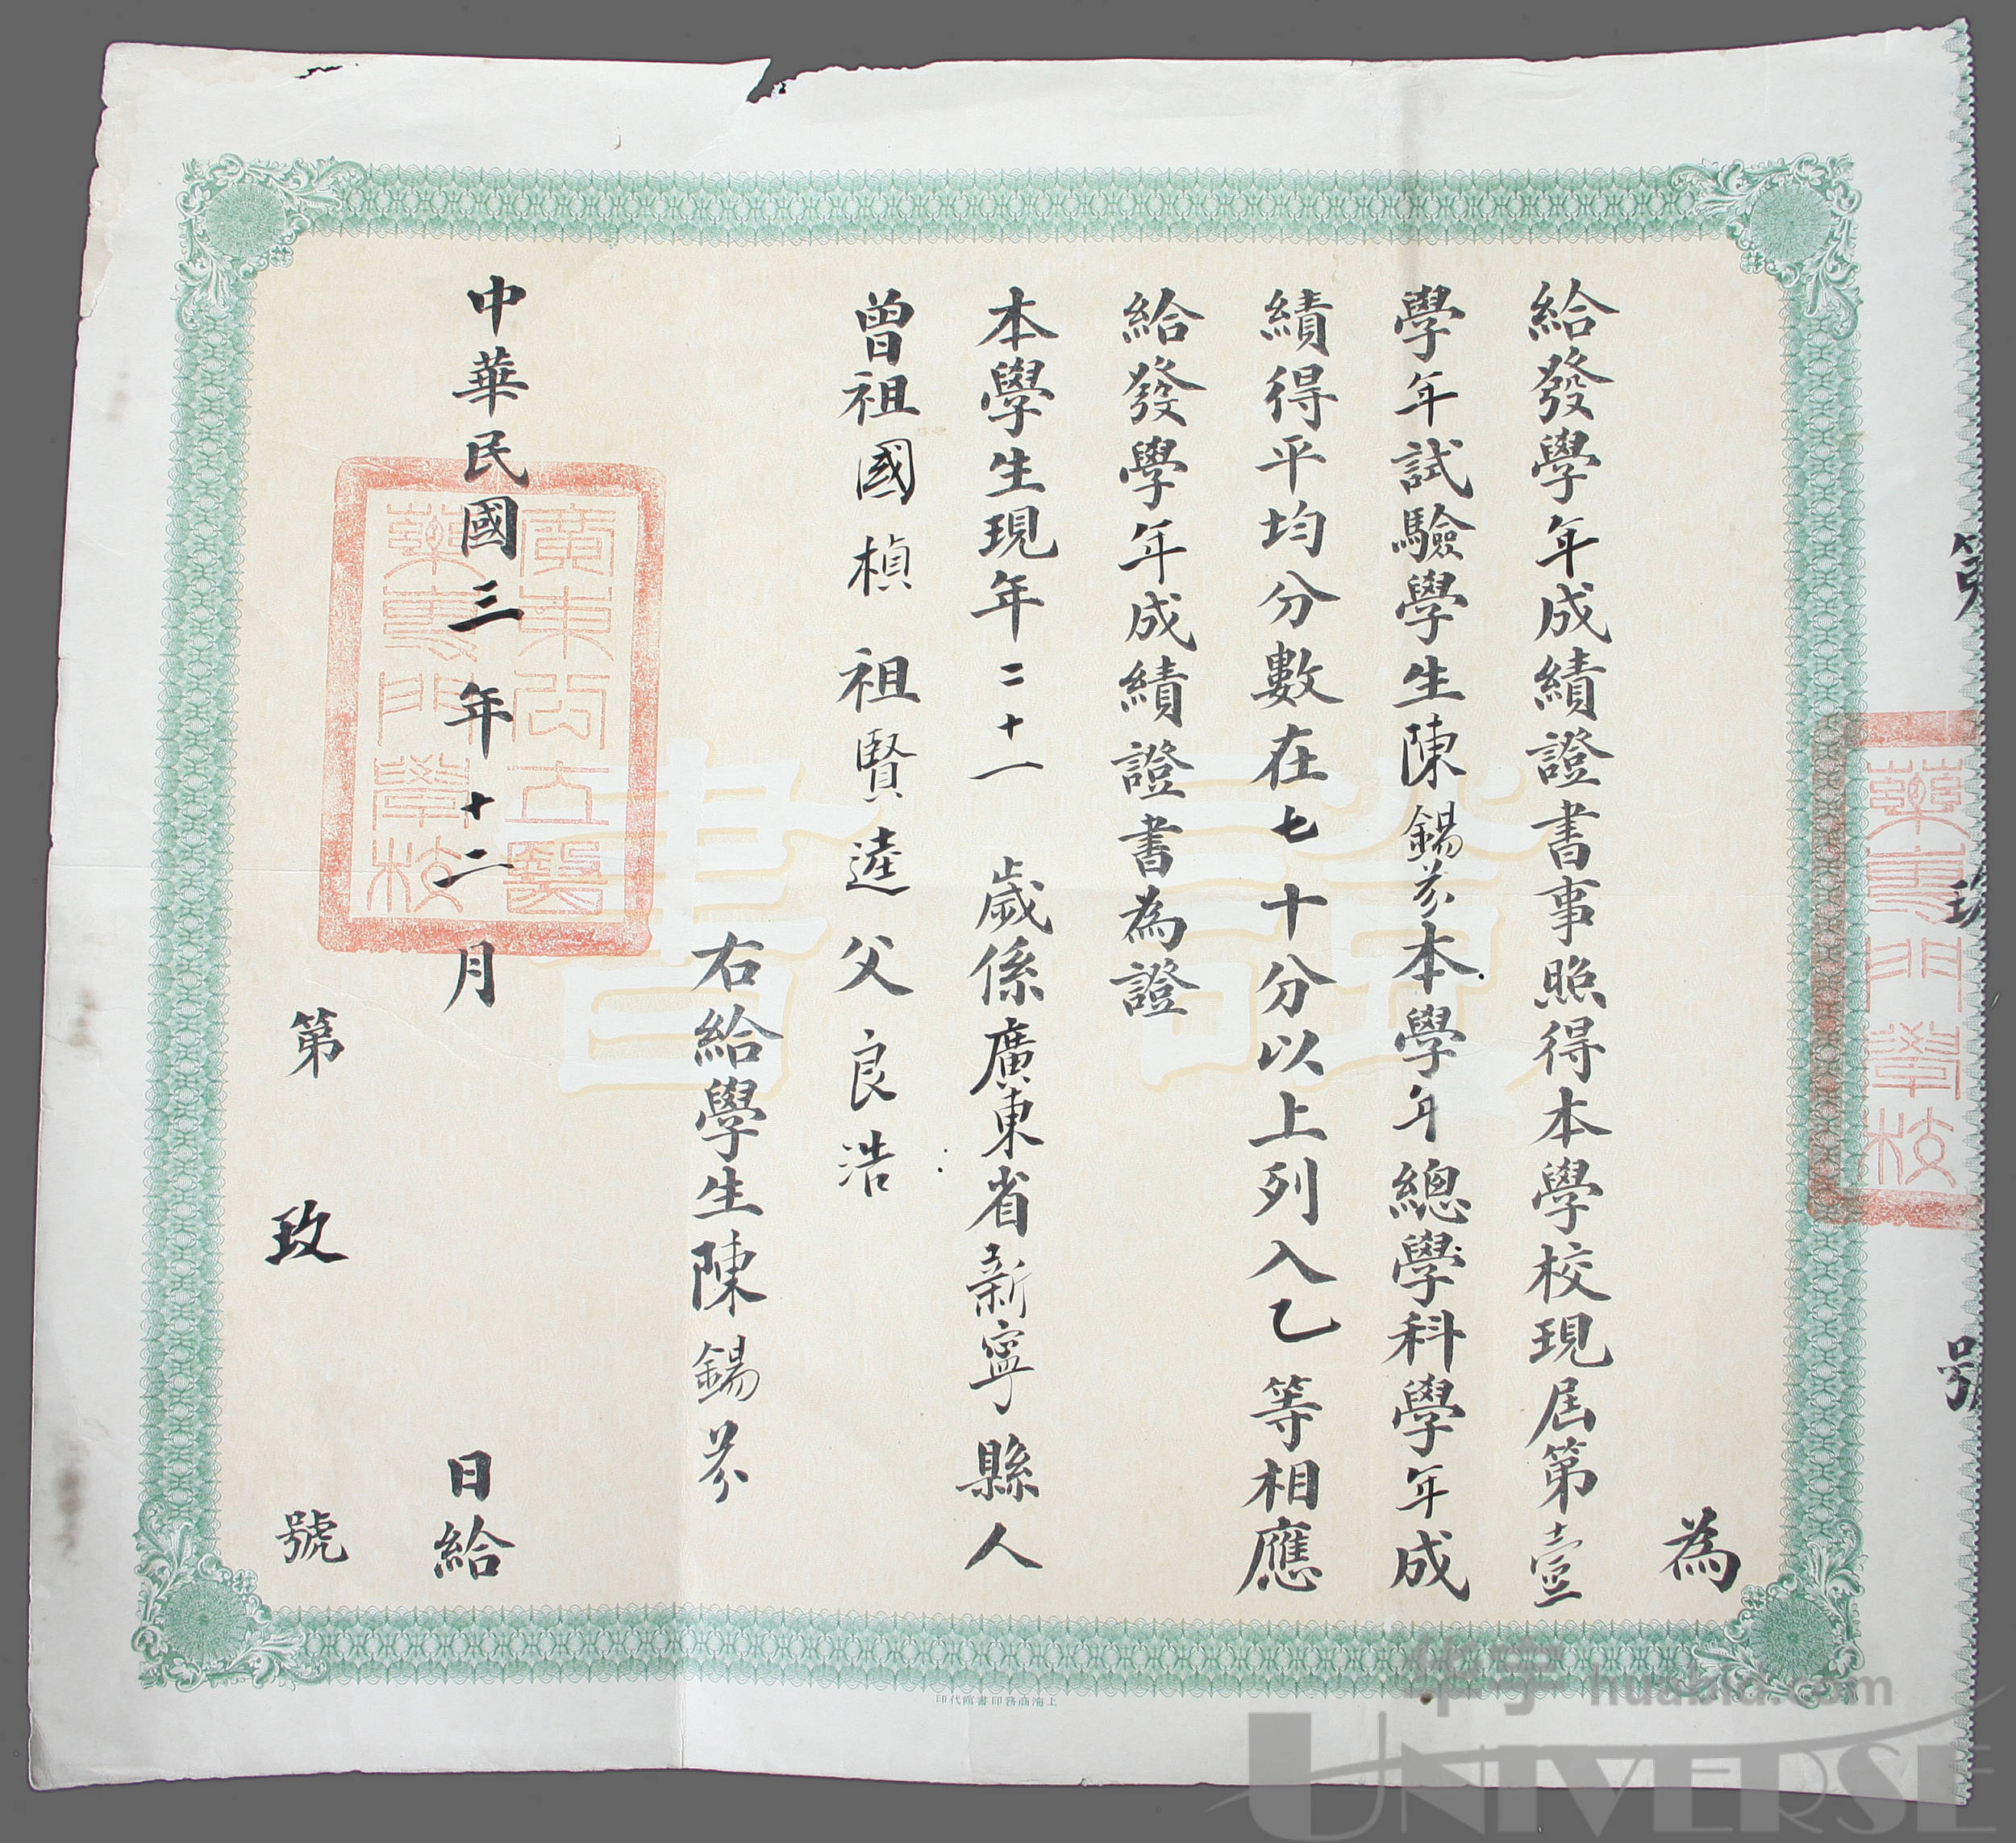 為
給發學年成績證書事照得本學校現屆第壹
學年試驗學生陳錫芬本學年總學科學年成
績得平均分數在七十分以上列入乙等相應
給發學年成績證書為證
本學生現年二十一歲係廣東省新寧縣人
曾祖國楨 祖賢逵 父良浩
右給學生陳錫芬
中華民國三年十二月 日給
第玫號
廣東公立醫
藥專門學校
藥專門學校
第玫號
證書
上海商務印書館代印
华宇 huabid.com
UNIVERSE